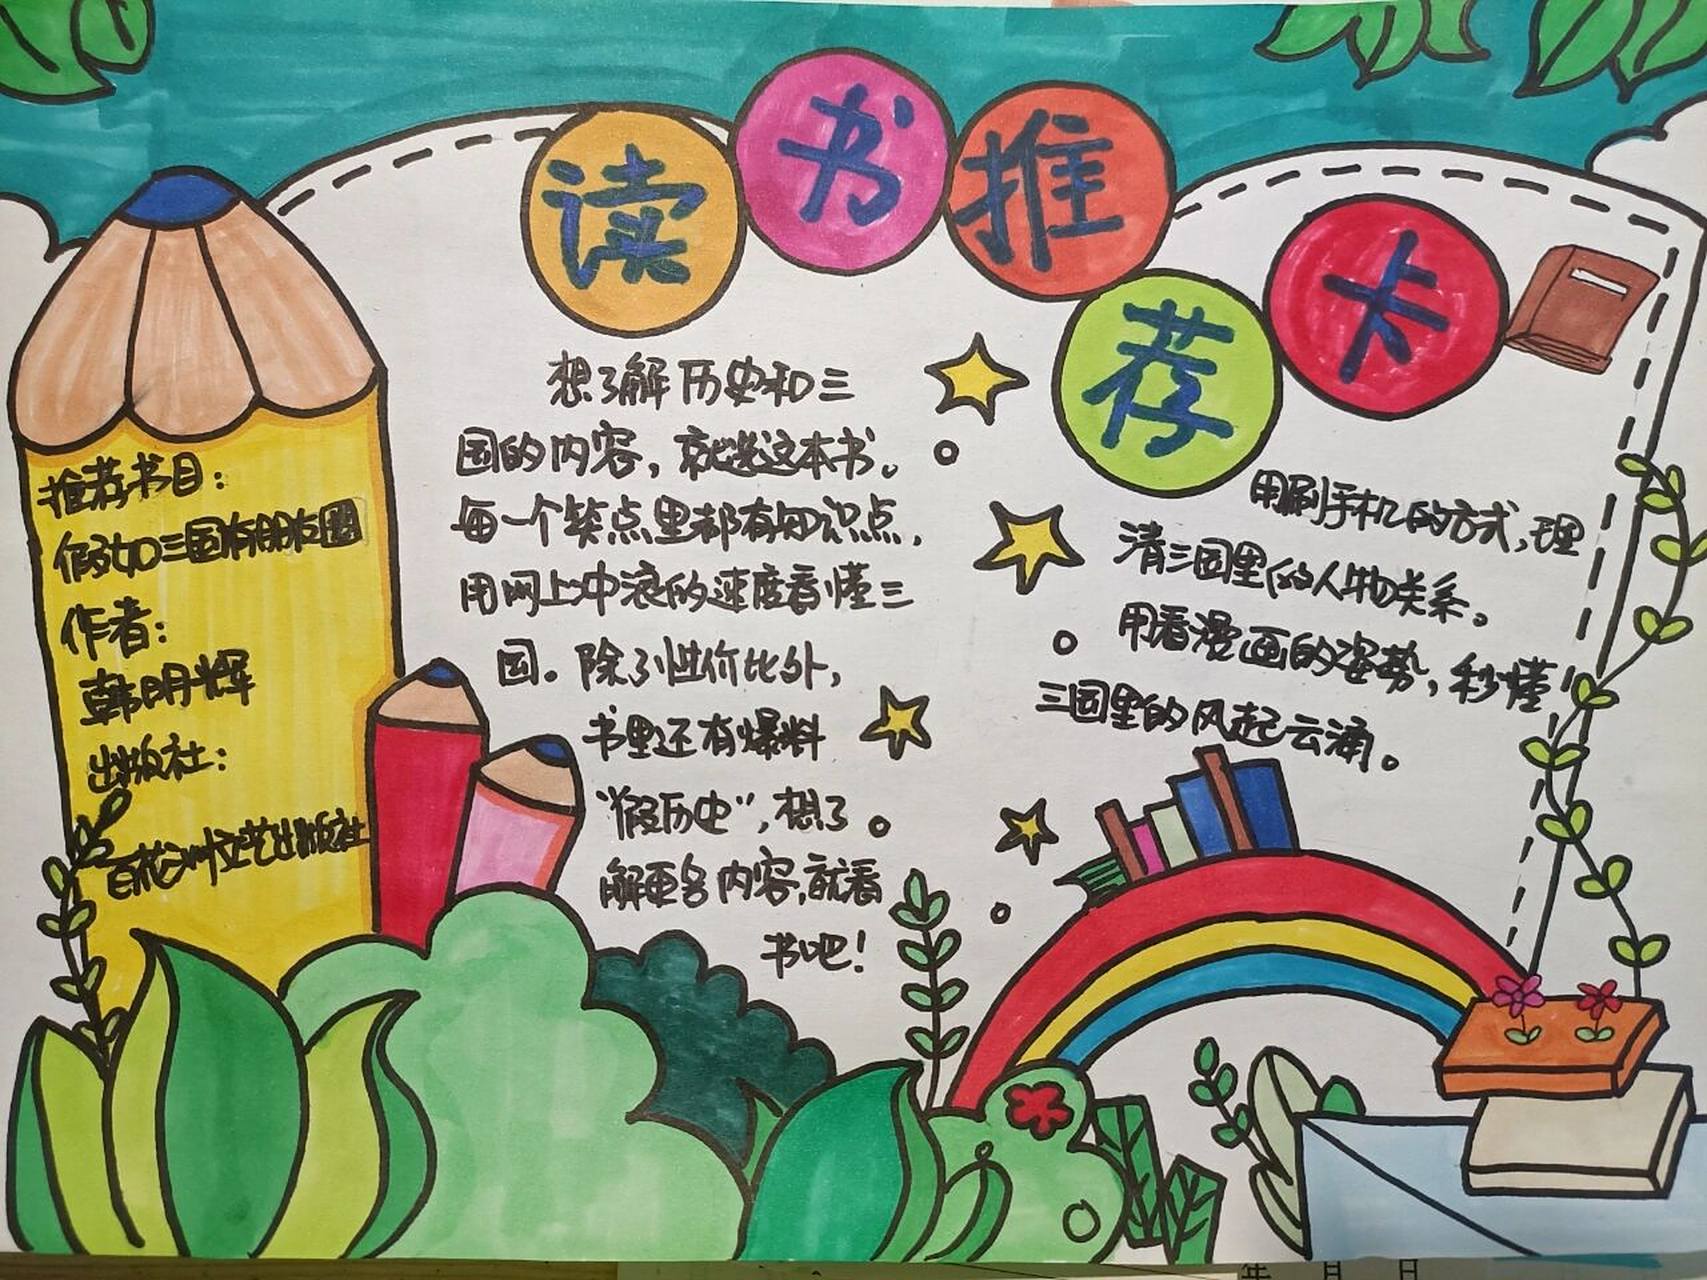 读书推荐卡
推荐书目：
假如三国有朋友圈
作者：
韩明辉
出版社：
百花洲文艺出版社
想了解历史和三
国的内容，就选这本书。
每一个笑点里都有知识点，
用网上冲浪的速度看懂三
国。除了性价比外，
书里还有爆料
“假历史”，想了
解更多内容，就看
书吧！
用刷手机的方式，理
清三国里的人物关系。
用看漫画的姿势，秒懂
三国里的风起云涌。
年 月 日